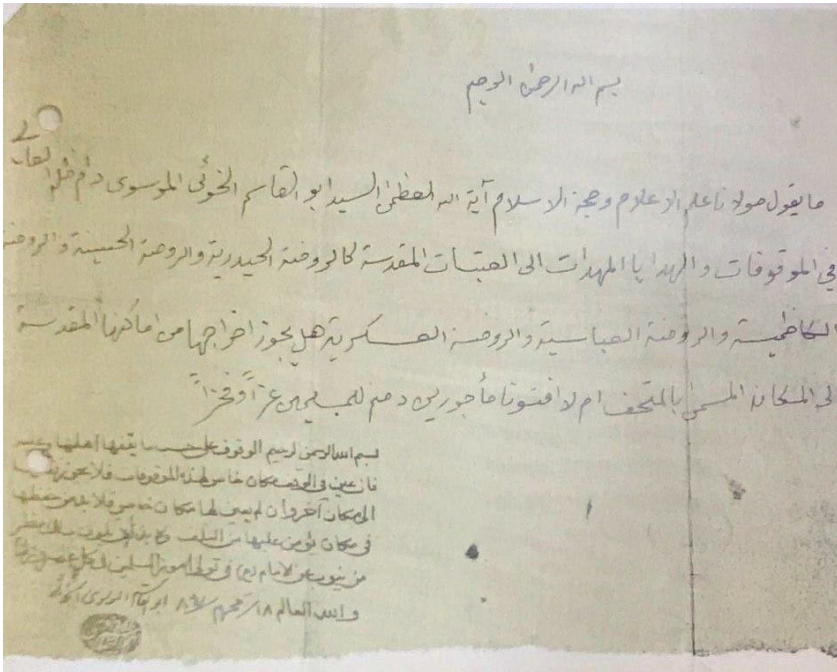 بسم الله الرحمن الرحيم
ما يقول مولانا علم الاعلام وحجة الاسلام آية الله العظمى السيد ابو القاسم الخوئي الموسوي دام ظله العالي
في الموقوفات والهدايا المهدات الى العتبات المقدسة كالروضة الحيدرية والروضة الحسينية والروضة
الكاظمية والروضة العباسية والروضة العسكرية هل يجوز اخراجها من اماكنها المقدسة
الى المكان المسمى بالمتحف ام لا افتونا مأجورين دمتم للمسلمين عزاً وفخراً
بسم الله الرحمن الرحيم الوقوف على حسب ما يقفها أهلها
فان عين في الوقف مكان خاص لهذه الموقوفات فلا يجوز نقلها
الى مكان آخر وان لم يعين لها مكان خاص فلا بد من حفظها
في مكان يؤمن عليها من التلف
من ينوب عن الامام في تولي امور المسلمين
والله العالم ١٨ محرم ابو القاسم الموسوي الخوئي